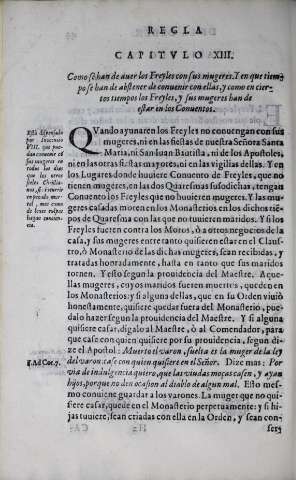 REGLA
CAPITVLO XIII.
Como se han de auer los Freyles con sus mugeres. Y en que tiem
po se han de abstener de conuenir con ellas, y como en cier-
tos tiempos los Freyles, y sus mugeres han de
estar en los Conuentos.
QVando ayunaren los Freyles no conuengan con sus
mugeres, ni en las fiestas de nuestra Señora Santa
Maria, ni San Iuan Bautista, ni de los Apostoles,
ni en las otras fiestas mayores, ni en las vigilias dellas. Y en
los Lugares donde huuiere Conuento de Freyles, que no
tienen mugeres, en las dos Quaresmas susodichas, tengan
Conuento los Freyles que no huuieren mugeres. Y las mu-
geres casadas moren en los Monasterios en los dichos tié-
pos de Quaresma con las que no tuuieren maridos. Y si los
Freyles fueren contra los Moros, ò a otros negocios de la
casa, y sus mugeres entre tanto quisieren estar en el Claus-
tro, ò Monasterio de las dichas mugeres, sean recibidas, y
tratadas honradamente, hasta en tanto que sus maridos
tornen. Y esto segun la prouidencia del Maestre. Aque-
llas mugeres, cuyos maridos fueren muertos, queden en
los Monasterios: y si alguna dellas, que en su Orden viuiò
honestamente, quisiere quedar fuera del Monasterio, pue-
dalo hazer segun la prouidencia del Maestre. Y si alguna
quisiere casar, digalo al Maestre, ò al Comendador, para
que case con quien quisiere por su licencia, segun que di-
ze el Apostol: Muerto el varon, suelta es la muger de la ley
del varon, case con quien quisiere en el Señor. Dize mas: Por
via de indulgencia quiero, que las viudas moças casen, y ayan
hijos, porque no den ocasion al diablo de algun mal. Esto mes-
mo conuiene guardar a los varones. La muger que no qui-
siere casar, quede en el Monasterio perpetuamente: y si hi-
jas tuuiere, sean criadas con ella en la Orden, y sean con-
VIII. que pue-
dan conuenir cõ
sus mugeres en
todos los dias
1. Ad Cor. 7.